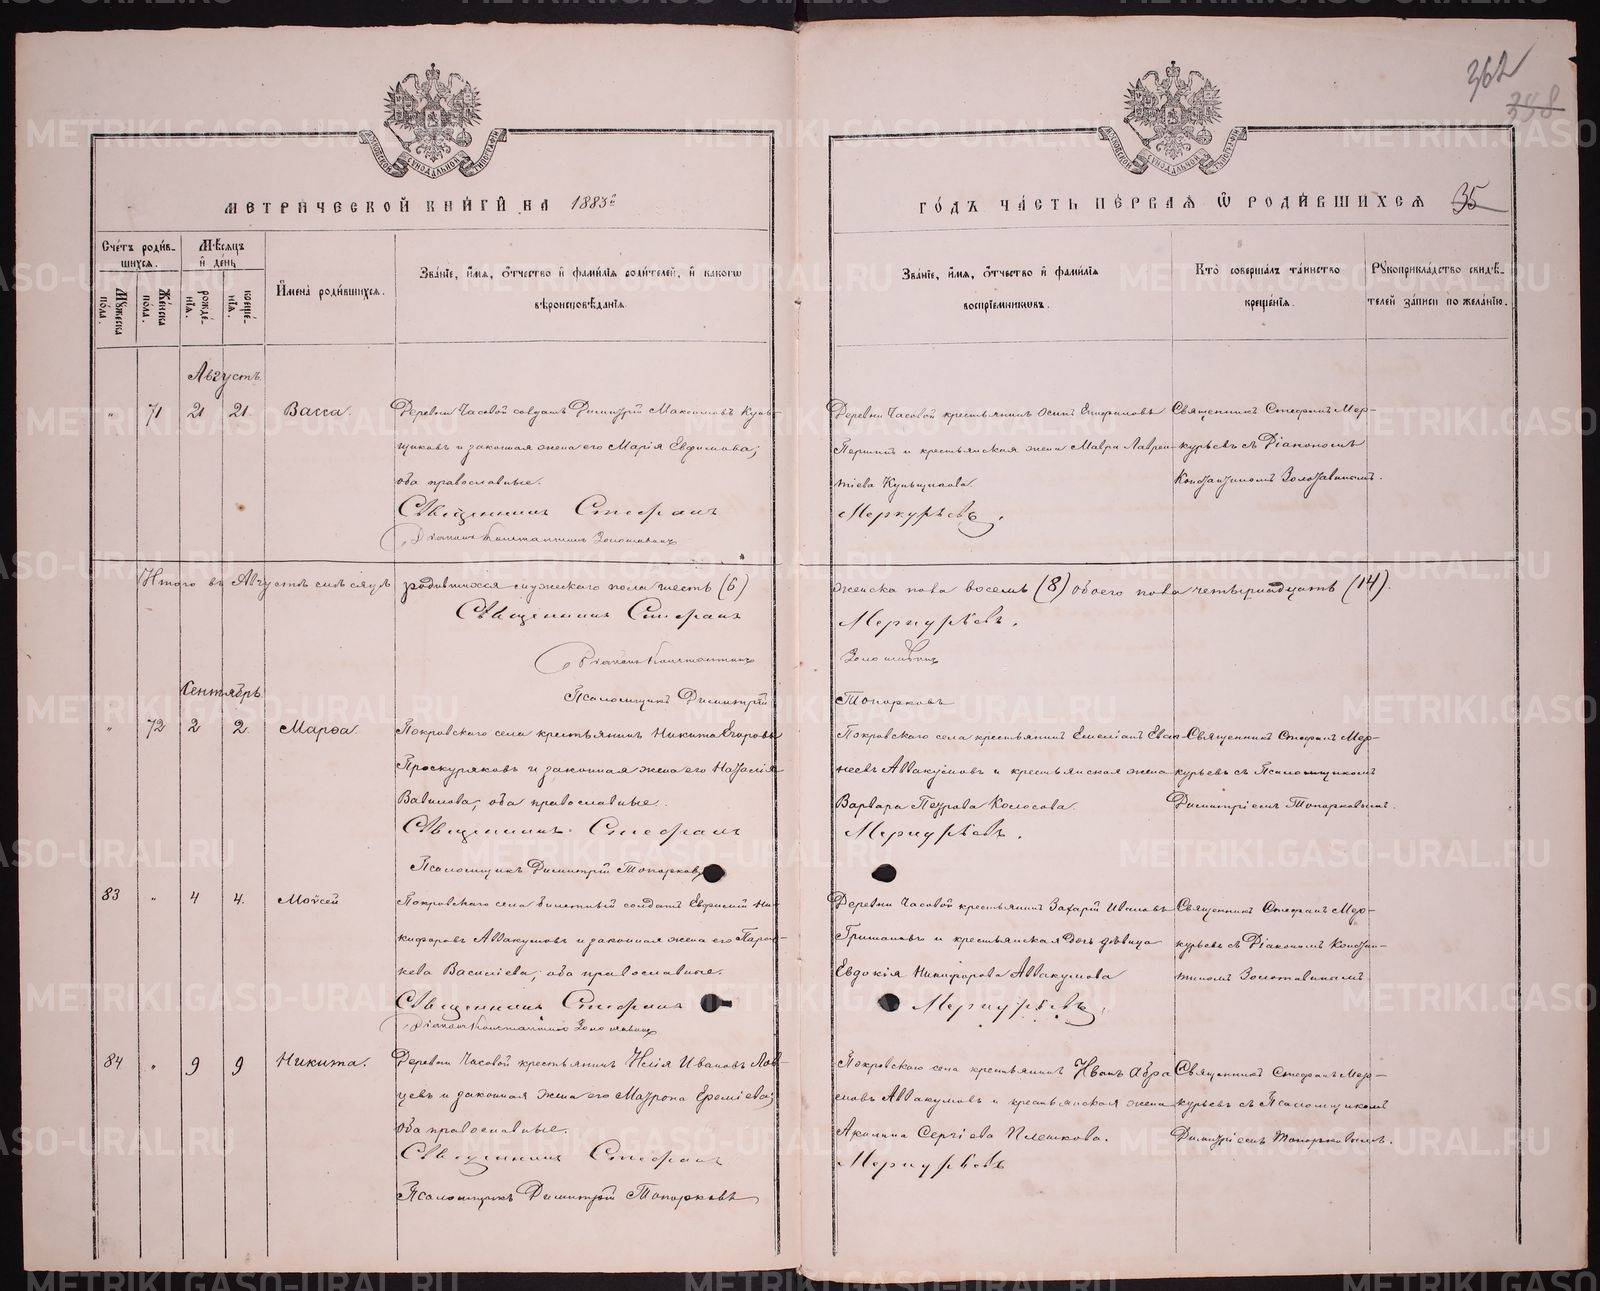 362
398
МЕТРИЧЕСКОЙ КНИГИ НА 1883й
ГОДЪ ЧАСТЬ ПЕРВАЯ Ѡ РОДИВШИХСЯ 35
Счетъ родившихся.
Мужеска пола.
Женска пола.
Мѣсяцъ и день
рожденія.
крещенія.
Имена родившихся.
Званіе, имя, отчество и фамилія родителей, и какого
вѣроисповѣданія.
Званіе, имя, отчество и фамилія
воспріемниковъ.
Кто совершалъ таинство
крещенія.
Рукоприкладство свидѣ-
телей записи по желанію.
Августъ.
" 71 21 21 Васса.
Деревни Часовой солдатъ Димитрій Максимовъ Кунь-
щиковъ и законная жена его Марія Евфимова;
оба православные.
Священникъ Стефанъ
Діаконъ Константинъ Золотавинъ
Деревни Часовой крестьянинъ Осипъ Епифановъ
Першинъ и крестьянская жена Мавра Лаврен-
тіева Куньщикова
Меркурьевъ.
Священникъ Стефанъ Мер-
курьевъ съ Діакономъ
Константиномъ Золотавинымъ.
Итого въ Августѣ мѣсяцѣ родившихся мужескаго пола шесть (6)
женска пола восемь (8) обоего пола четырнадцать (14).
Священникъ Стефанъ Меркурьевъ.
Діаконъ Константинъ Золотавинъ
Псаломщикъ Димитрій Топорковъ
Сентябрь
" 72 2 2 Марѳа.
Покровскаго села крестьянинъ Никита Егоровъ
Проскуряковъ и законная жена его Наталія
Вавилова; оба православные.
Священникъ Стефанъ
Псаломщикъ Димитрій Топорковъ
Покровскаго села крестьянинъ Емеліанъ
неевъ Аввакумовъ и крестьянская жена
Варвара Петрова Колосова.
Меркурьевъ.
Священникъ Стефанъ Мер-
курьевъ съ Псаломщикомъ
Димитріемъ Топорковымъ.
83 " 4 4. Моѵсей
Покровскаго села билетный солдатъ Евфимій Ни-
кифоровъ Аввакумовъ и законная жена его Парас-
кева Василіева; оба православные.
Священникъ Стефанъ
Діаконъ Константинъ Золотавинъ
Деревни Часовой крестьянинъ Захарій Ивановъ
Гришановъ и крестьянская дочь дѣвица
Евдокія Никифорова Аввакумова
Меркурьевъ.
Священникъ Стефанъ Мер-
курьевъ съ Діакономъ Констан-
тиномъ Золотавинымъ
84 " 9 9 Никита.
Деревни Часовой крестьянинъ Илія Ивановъ Лов-
цевъ и законная жена его Матрона Еремѣева;
оба православные.
Священникъ Стефанъ
Псаломщикъ Димитрій Топорковъ
Покровскаго села крестьянинъ Иванъ Абра-
мовъ Аввакумовъ и крестьянская жена
Акилина Сергіева Плешкова.
Меркурьевъ
Священникъ Стефанъ Мер-
курьевъ съ Псаломщикомъ
Димитріемъ Топорковымъ.
METRIKI.GASO-URAL.RU